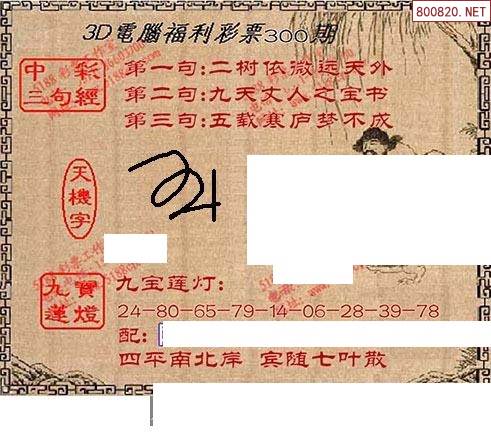 800820.NET
3D電腦福利彩票300期
中彩三句經
第一句:二树依微远天外
第二句:九天丈人之宝书
第三句:五载寒庐梦不成
天機字
九寶蓮燈
九宝莲灯:
24-80-65-79-14-06-28-39-78
配:
四平南北岸 宾随七叶散